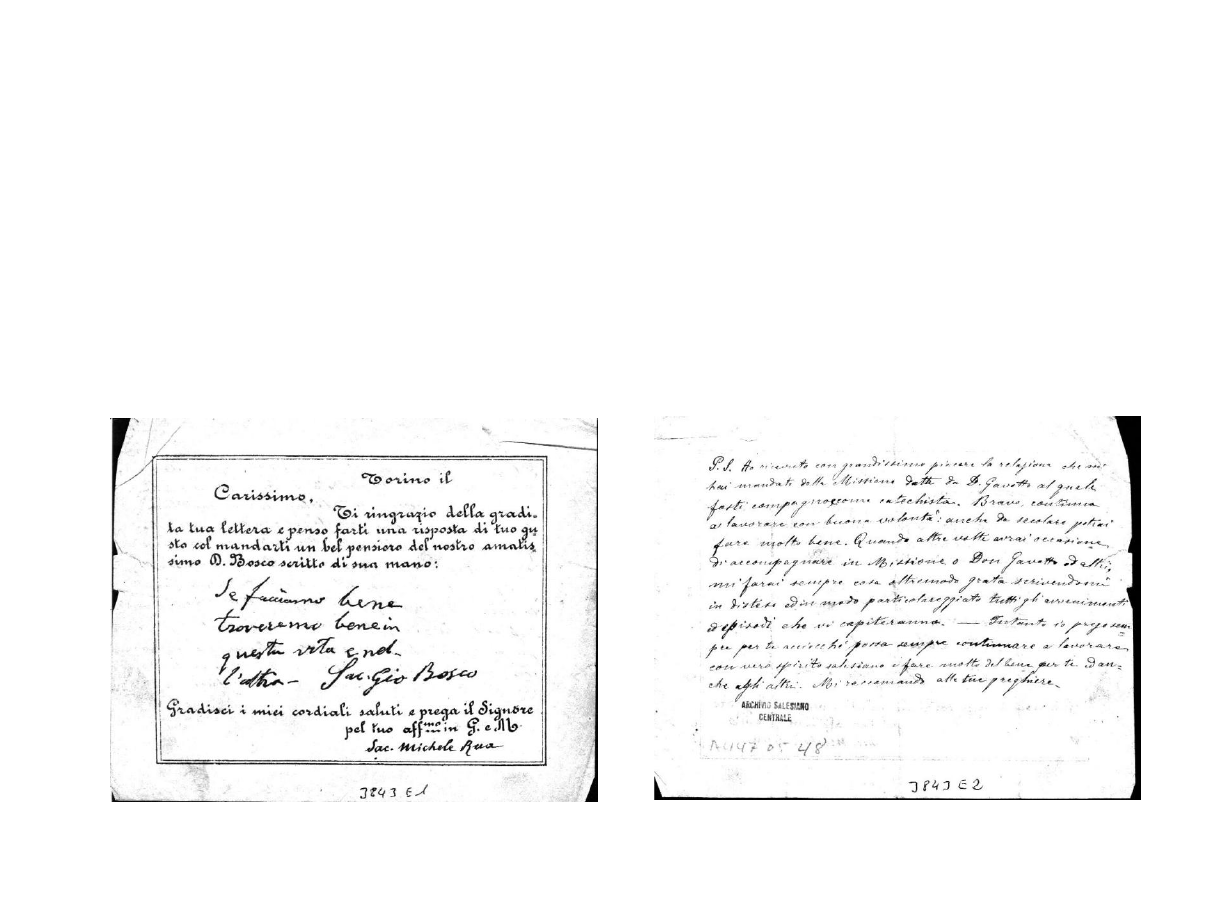 Torino il
Carissimo,
Ti ringrazio della gradi-
ta tua lettera e penso farti una risposta di tuo gu
sto col mandarti un bel pensiero del nostro amatis
simo D. Bosco scritto di sua mano:
Se facciamo bene
troveremo bene in
questa vita e nel-
l'altra - Sac. Gio Bosco
Gradisci i miei cordiali saluti e prega il Signore
pel tuo affmo in G. e M.
Sac. Michele Rua
J843 E1
P.S. Ho ricevuto con grandissimo piacere la relazione che mi
hai mandato della Missione data da D. Gavotto al quale
fosti compagno come catechista. Bravo, continua
a lavorare con buona volontà: anche da secolare potrai
fare molto bene. Quando altre volte avrai occasione
di accompagnare in Missione o Don Gavotto od altri,
mi farai sempre cosa oltremodo grata scrivendomi
in disteso ed in modo particolareggiato tutti gli avvenimenti
ed episodi che vi capiteranno. — Intanto io prego sem=
pre per te acciocché possa sempre continuare a lavorare
con vero spirito salesiano e fare molto del bene per te ed an-
che agli altri. Mi raccomando alle tue preghiere.
ARCHIVIO SALESIANO
CENTRALE
A447 05 48
J843 E2